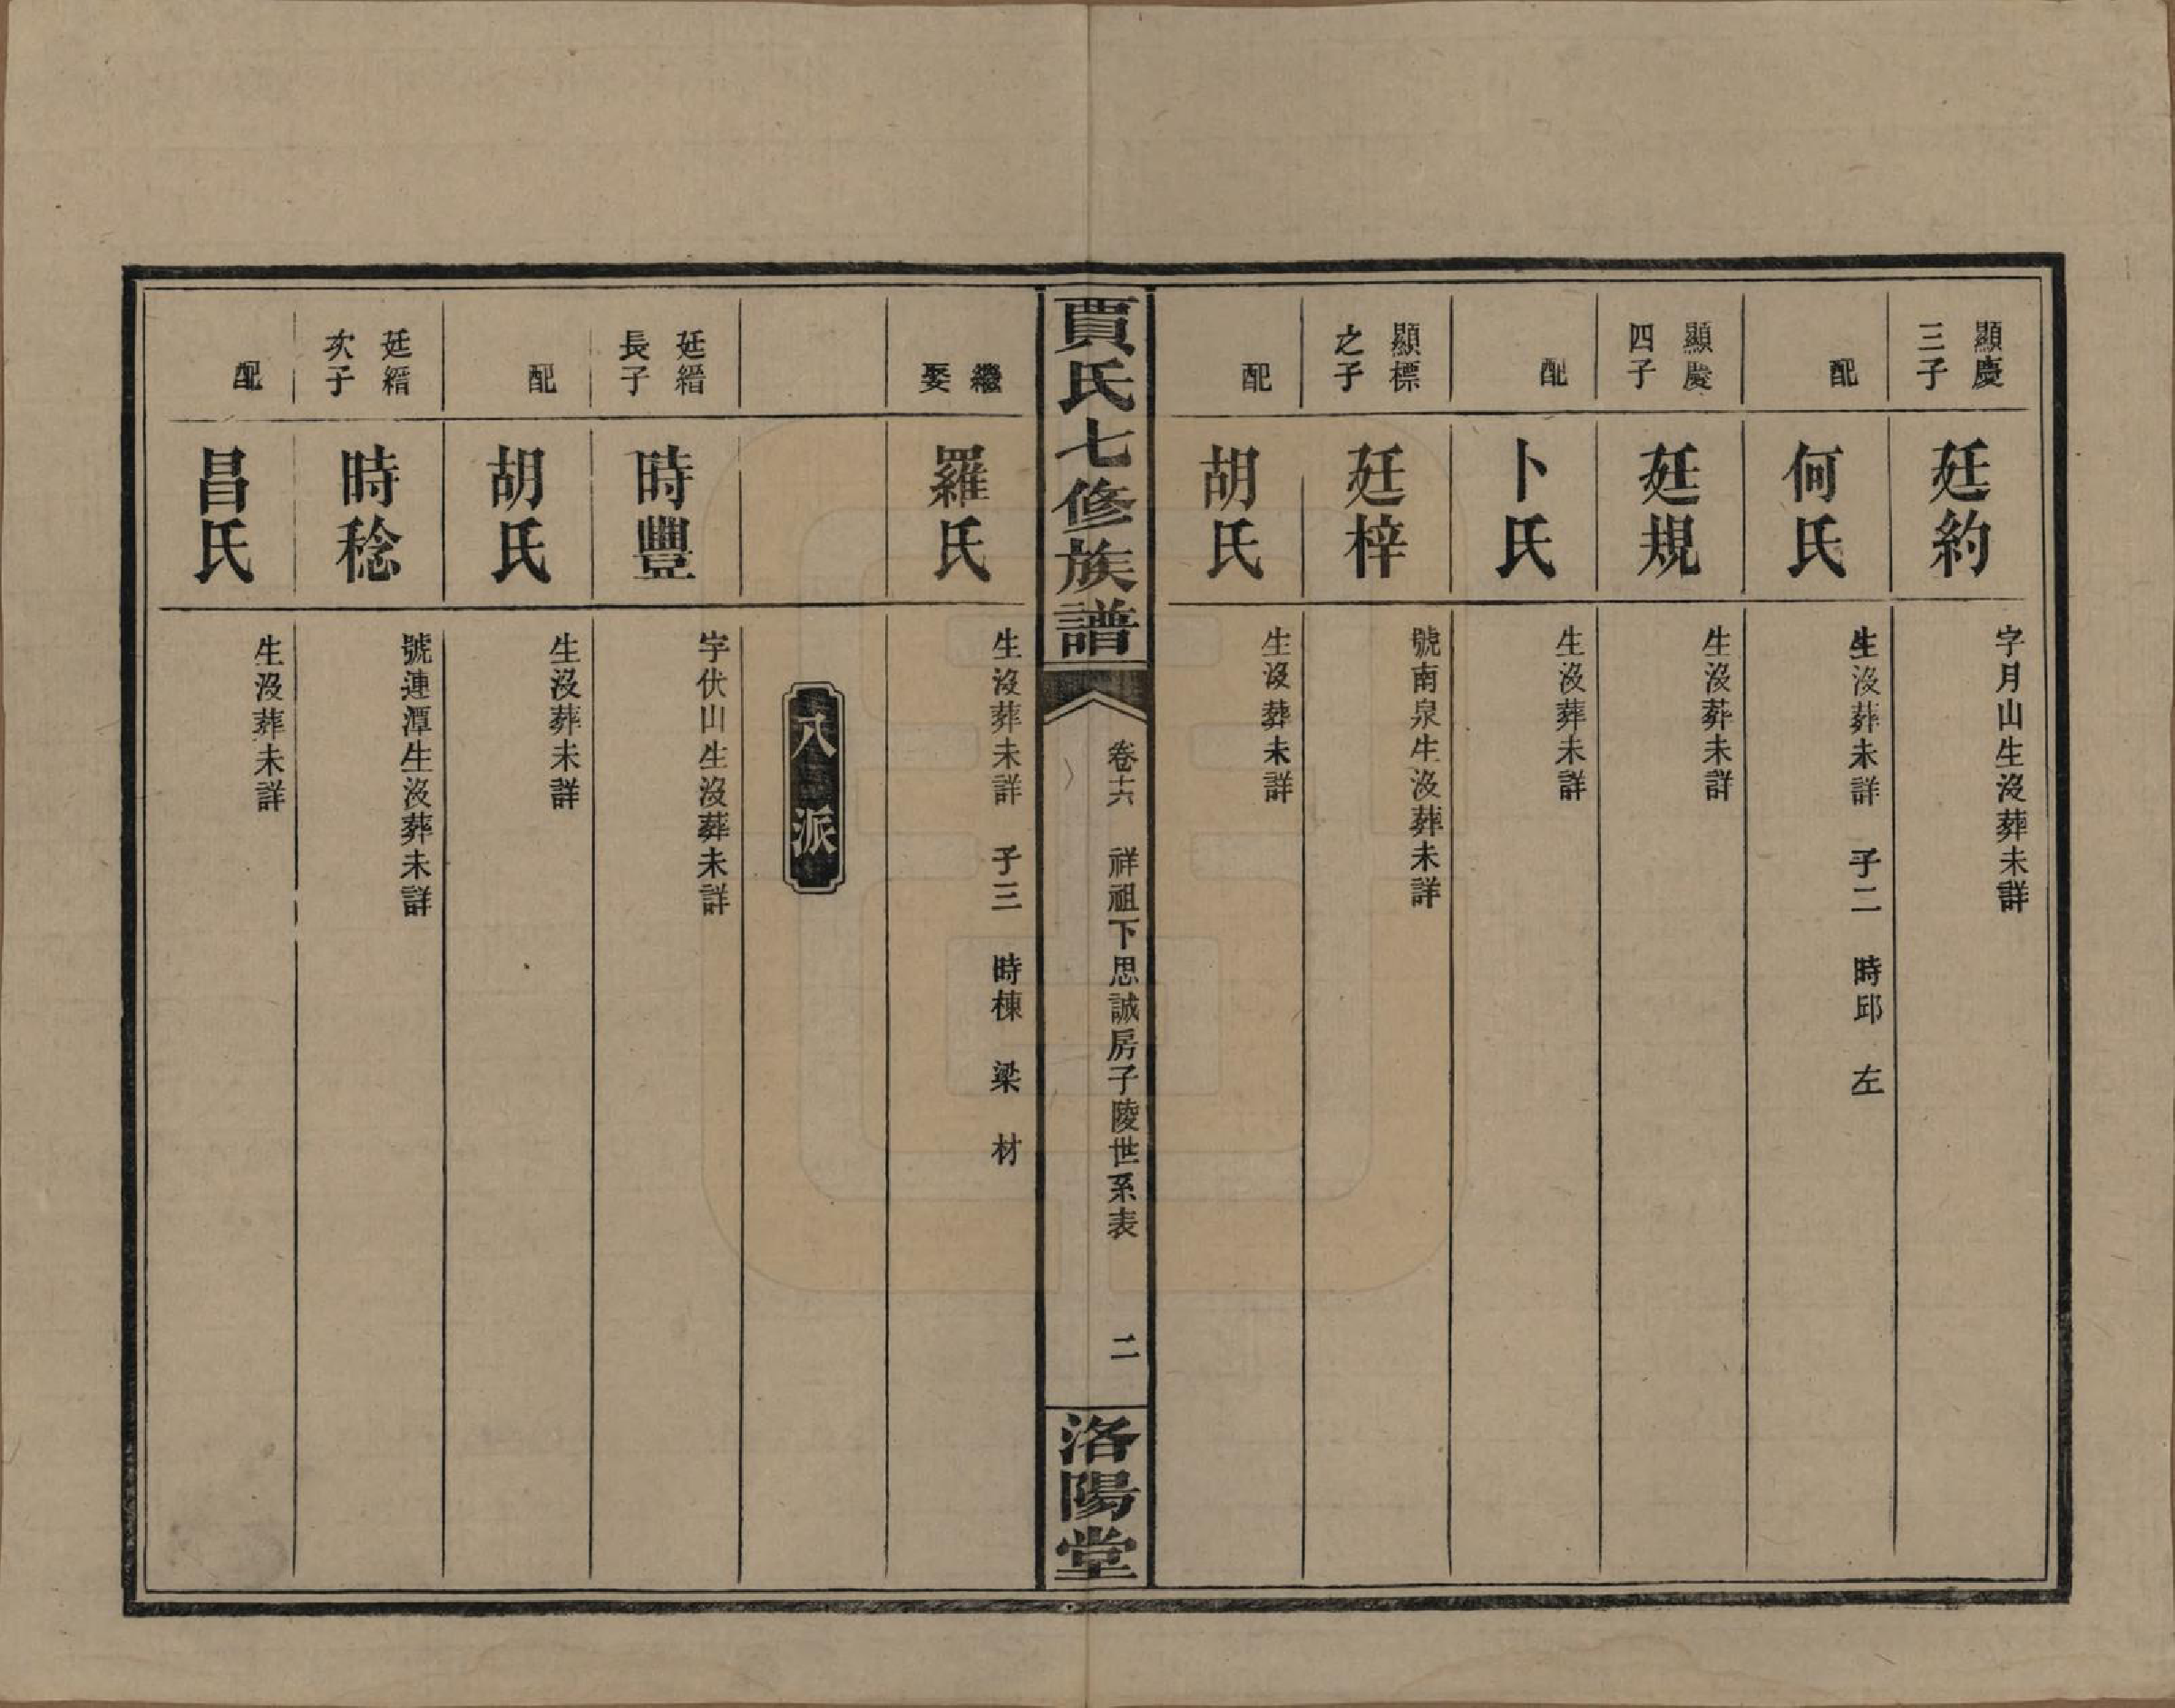 顯慶三子
廷約
字月山生沒葬未詳
配
何氏
生沒葬未詳　子二　時邱　左
顯慶四子
廷規
生沒葬未詳
配
卜氏
生沒葬未詳
顯標之子
廷梓
號南泉生沒葬未詳
配
胡氏
生沒葬未詳
賈氏七修族譜
卷十六　祥祖下思誠房子陵世系表　二
洛陽堂
繼娶
羅氏
生沒葬未詳　子三　時棟　梁　材
八派
廷縉長子
時豐
字伏山生沒葬未詳
配
胡氏
生沒葬未詳
廷縉次子
時稔
號連潭生沒葬未詳
配
昌氏
生沒葬未詳